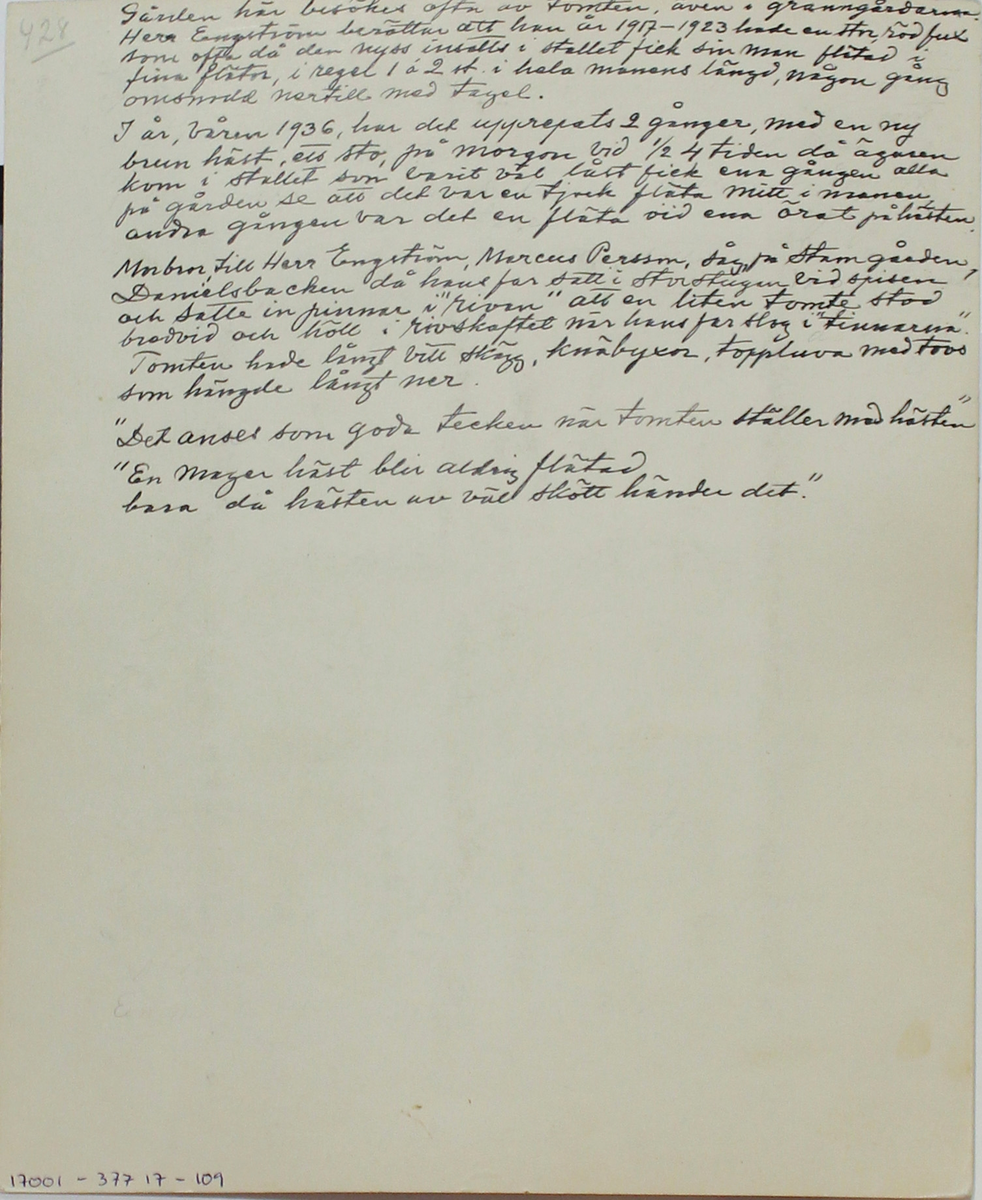 428
Gården här besökes ofta av tomten, även i granngårdarna.
Herr Engström berättar att han år 1917–1923 hade en stor, röd fux
som ofta då den nyss insatts i stallet fick sin man flätad i
fina flätor, i regel 1 á 2 st. i hela manens längd, någon gång
omsnodd nertill med tagel.
I år, våren 1936, har det upprepats 2 gånger, med en ny
brun häst, ett sto, på morgon vid 1/2 4 tiden då ägaren
kom i stallet som varit väl låst fick ena gången alla
på gården se att det var en tjock fläta mitt i manen,
andra gången var det en fläta vid ena örat på hästen.
Morbror till Herr Engström, Marcus Persson, såg på stamgården,
Danielsbacken då hans far satt i storstugan vid spisen
och satte in pinnar i "rivan" att en liten tomte stod
bredvid och höll i rivskaftet när hans far slog i "tinnarna".
Tomten hade långt vitt skägg, knäbyxor, toppluva med tovs
som hängde långt ner.
"Det anses som goda tecken när tomten ställer med hästen"
"En mager häst blir aldrig flätad
bara då hästen är väl skött händer det."
17001 – 377 17 – 109